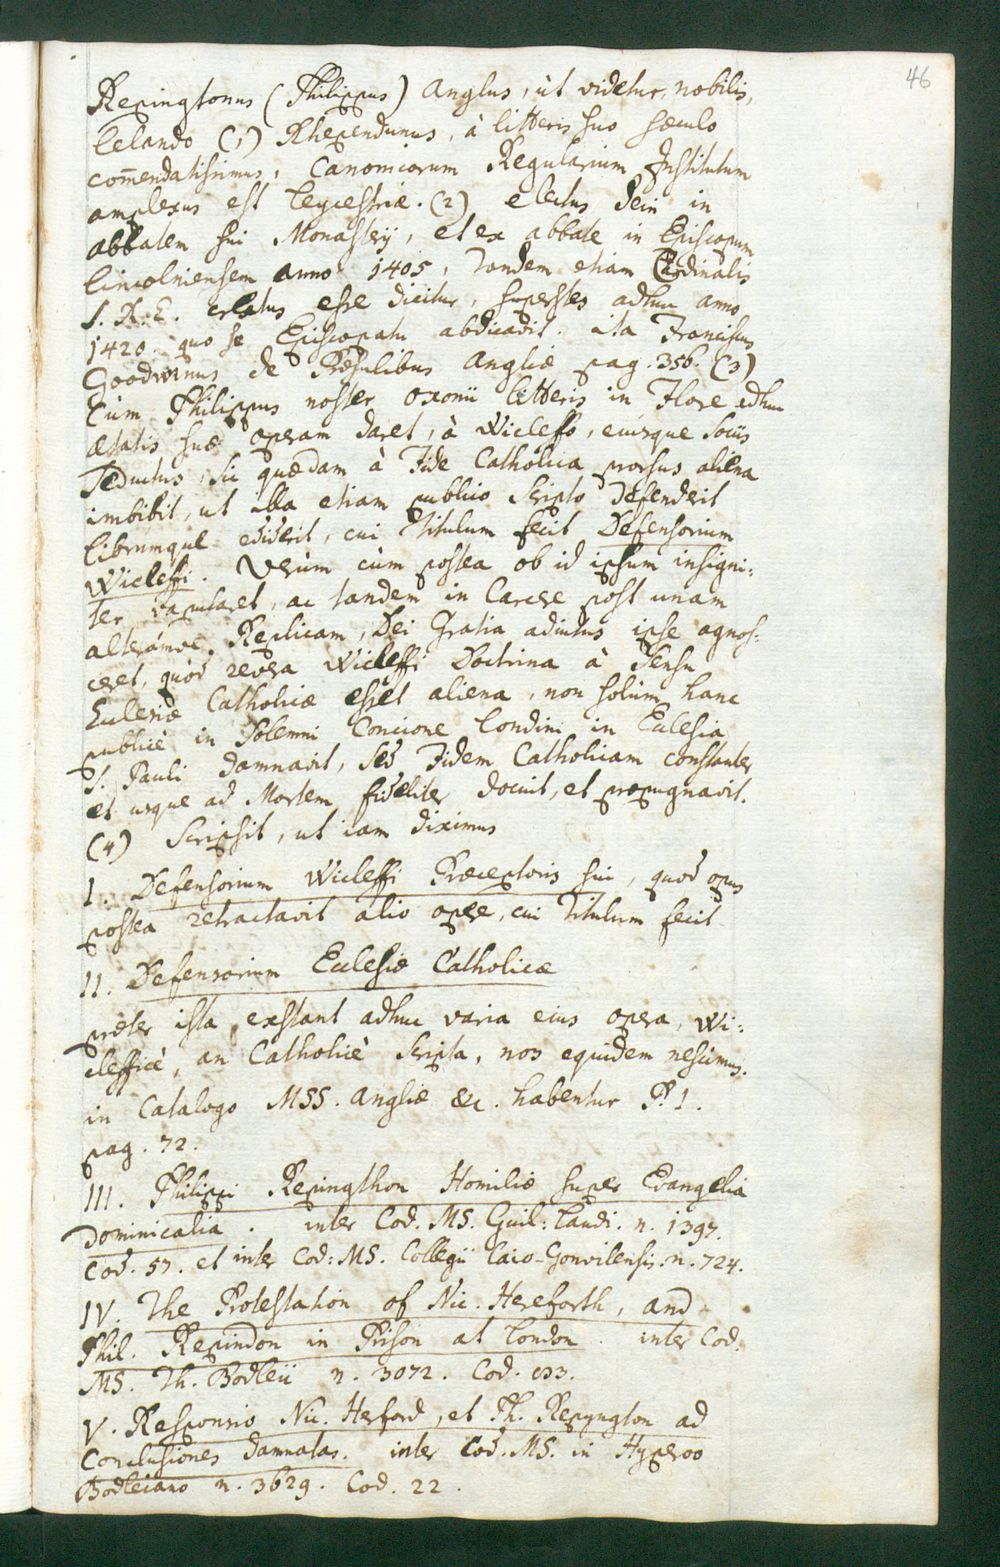 46
Repingtonus (Philippus) Anglus, ùt videtur, nobilis,
Lelando (1) Rhependunus, à litteris suo sæculo
com̄endatissimus, Canonicorum Regularium Institutum
amplexus est Leycestriæ. (2) electus dein in
abbatem sui Monasterij, et ex abbate in Episcopum
Lincolniensem anno 1405, tandem etiam Cardinalis
S. R. E. creatus esse dicitur, superstes adhuc anno
1420. quo se Episcopatu abdicavit. ita Franciscus
Goodwinus de Præsulibus Angliæ pag. 356. (3)
Cùm Philippus noster Oxonii litteris in Flore adhuc
ætatis suæ operam daret, à Wicleffo, eiusque sociis
seductus, sic quædam à Fide Catholica prorsus aliena
imbibit, ut illa etiam publico scripto defenderit
Librumque ediderit, cui titulum fecit Defensorium
Wicleffi. Verùm cùm postea ob id ipsum insigni:
ter vapularet, ac tandem in Carcere post unam
alterámve Replicam, Dei Gratia adiutus ipse agnos:
ceret, quòd revera Wicleffi Doctrina à Sensu
Eclesiæ Catholicæ esset aliena, non solùm hanc
publicè in solemni Concione Londini in Eclesia
S. Pauli damnavit, sed Fidem Catholicam constanter
et usque ad Mortem fideliter docuit, et propugnavit.
(4) Scripsit, ut iam diximus
I. Defensorium Wicleffi Præceptoris sui, quod opus
postea retractavit alio opere, cui titulum fecit
II. Defensorium Eclesiæ Catholicæ
præter ista exstant adhuc varia eius opera, Wi:
cleffice, an Catholicè scripta, nos equidem nescimus.
in Catalogo MSS. Angliæ &c. habentur P. 1.
pag. 72.
III. Philippi Repingthon Homiliæ super Evangelia
Dominicalia. inter Cod. MS. Guil: Laudi. n. 1397.
Cod. 57. et inter Cod: MS. Collegii Caio-Gonvilensis. n. 724.
IV. The Protestation of Nic. Hereforth, and
Phil. Repindon in Prison at London. inter Cod.
MS. Th. Bodleii n. 3072. Cod. 033.
V. Responsio Nic. Herford, et Ph. Repyngton ad
Conclusiones damnatas. inter Cod. MS. in Hyperoo
Bodleiano n. 3629. Cod. 22.